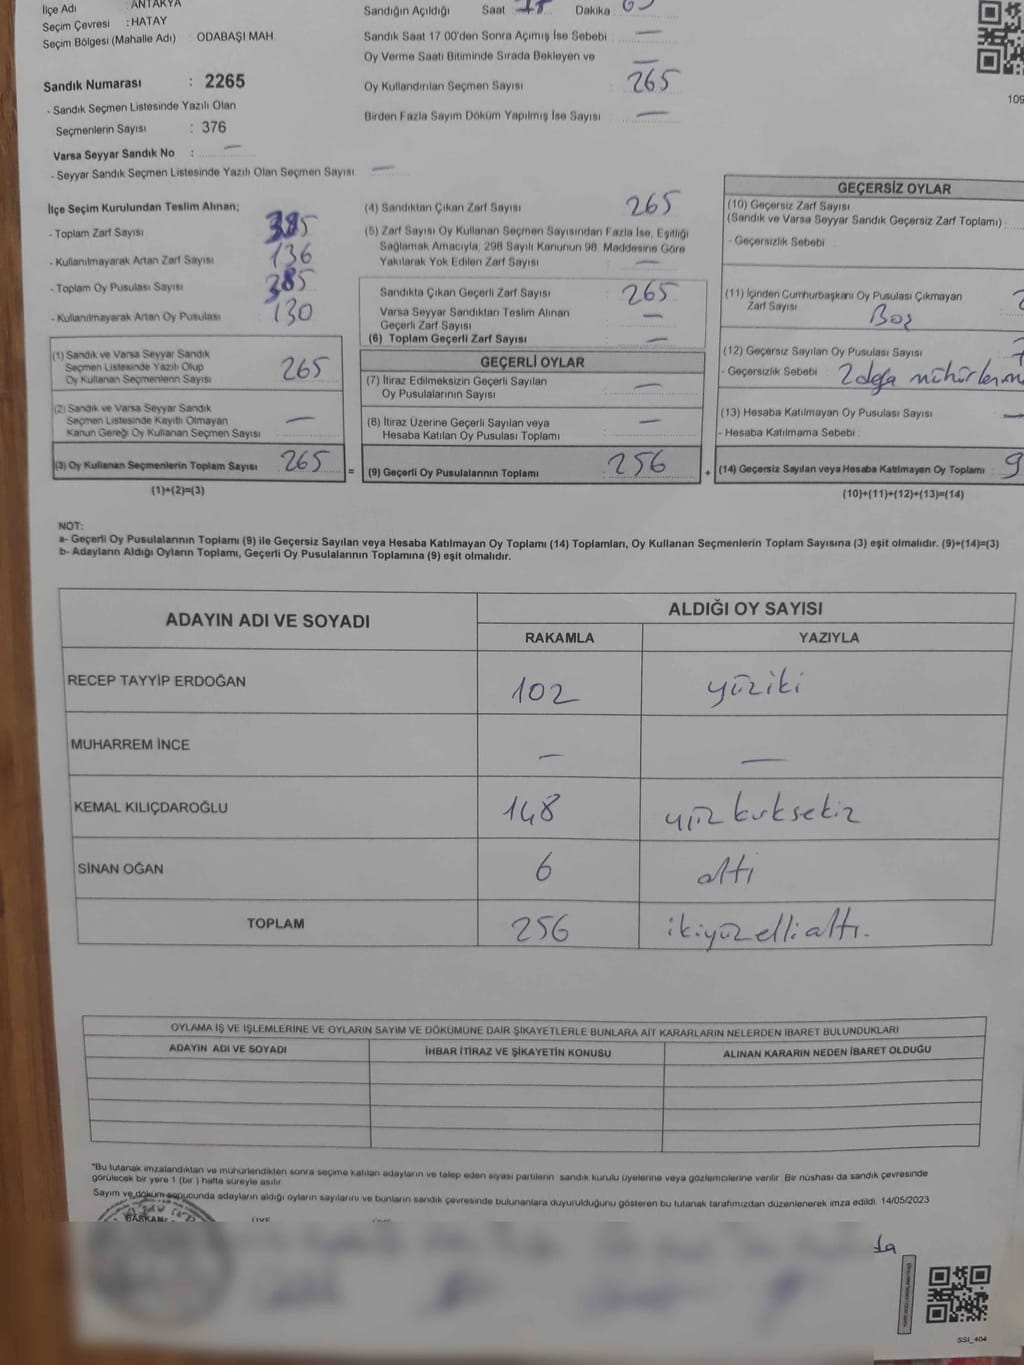 İlçe Adı : ANTAKYA
Seçim Çevresi : HATAY
Seçim Bölgesi (Mahalle Adı) ODABAŞI MAH.
Sandık Numarası : 2265
- Sandık Seçmen Listesinde Yazılı Olan
Seçmenlerin Sayısı : 376
Varsa Seyyar Sandık No : —
- Seyyar Sandık Seçmen Listesinde Yazılı Olan Seçmen Sayısı —
Sandığın Açıldığı Saat 17 Dakika
Sandık Saat 17.00'den Sonra Açımış İse Sebebi —
Oy Verme Saati Bitiminde Sırada Bekleyen ve —
Oy Kullandırılan Seçmen Sayısı 265
Birden Fazla Sayım Döküm Yapılmış İse Sayısı —
109
İlçe Seçim Kurulundan Teslim Alınan;
- Toplam Zarf Sayısı 385
- Kullanılmayarak Artan Zarf Sayısı 136
- Toplam Oy Pusulası Sayısı 385
- Kullanılmayarak Artan Oy Pusulası 130
(1) Sandık ve Varsa Seyyar Sandık
Seçmen Listesinde Yazılı Olup
Oy Kullanan Seçmenlerin Sayısı 265
(2) Sandık ve Varsa Seyyar Sandık
Seçmen Listesinde Kayıtlı Olmayan
Kanun Gereği Oy Kullanan Seçmen Sayısı —
(3) Oy Kullanan Seçmenlerin Toplam Sayısı 265 =
(1)+(2)=(3)
(4) Sandıktan Çıkan Zarf Sayısı 265
(5) Zarf Sayısı Oy Kullanan Seçmen Sayısından Fazla İse, Eşitliği
Sağlamak Amacıyla, 298 Sayılı Kanunun 98. Maddesine Göre
Yakılarak Yok Edilen Zarf Sayısı —
Sandıkta Çıkan Geçerli Zarf Sayısı 265
Varsa Seyyar Sandıktan Teslim Alınan
Geçerli Zarf Sayısı —
(6) Toplam Geçerli Zarf Sayısı —
GEÇERLİ OYLAR
(7) İtiraz Edilmeksizin Geçerli Sayılan
Oy Pusulalarının Sayısı —
(8) İtiraz Üzerine Geçerli Sayılan veya
Hesaba Katılan Oy Pusulası Toplamı —
(9) Geçerli Oy Pusulalarının Toplamı 256 +
GEÇERSİZ OYLAR
(10) Geçersiz Zarf Sayısı
(Sandık ve Varsa Seyyar Sandık Geçersiz Zarf Toplamı) :
- Geçersizlik Sebebi :
(11) İçinden Cumhurbaşkanı Oy Pusulası Çıkmayan
Zarf Sayısı Boş
(12) Geçersiz Sayılan Oy Pusulası Sayısı
- Geçersizlik Sebebi : 2 defa
(13) Hesaba Katılmayan Oy Pusulası Sayısı —
- Hesaba Katılmama Sebebi :
(14) Geçersiz Sayılan veya Hesaba Katılmayan Oy Toplamı 9
(10)+(11)+(12)+(13)=(14)
NOT:
a- Geçerli Oy Pusulalarının Toplamı (9) ile Geçersiz Sayılan veya Hesaba Katılmayan Oy Toplamı (14) Toplamları, Oy Kullanan Seçmenlerin Toplam Sayısına (3) eşit olmalıdır. (9)+(14)=(3)
b- Adayların Aldığı Oyların Toplamı, Geçerli Oy Pusulalarının Toplamına (9) eşit olmalıdır.
ADAYIN ADI VE SOYADI ALDIĞI OY SAYISI
RAKAMLA YAZIYLA
RECEP TAYYİP ERDOĞAN 102 yüziki
MUHARREM İNCE — —
KEMAL KILIÇDAROĞLU 148 yüz kırksekiz
SİNAN OĞAN 6 altı
TOPLAM 256 ikiyüzellialtı.
OYLAMA İŞ VE İŞLEMLERİNE VE OYLARIN SAYIM VE DÖKÜMÜNE DAİR ŞİKAYETLERLE BUNLARA AİT KARARLARIN NELERDEN İBARET BULUNDUKLARI
ADAYIN ADI VE SOYADI İHBAR İTİRAZ VE ŞİKAYETİN KONUSU ALINAN KARARIN NEDEN İBARET OLDUĞU
"Bu tutanak imzalandıktan ve mühürlendikten sonra seçime katılan adayların ve talep eden siyasi partilerin sandık kurulu üyelerine veya gözlemcilerine verilir. Bir nüshası da sandık çevresinde
görülecek bir yere 1 (bir) hafta süreyle asılır.
Sayım ve döküm sonucunda adayların aldığı oyların sayılarını ve bunların sandık çevresinde bulunanlara duyurulduğunu gösteren bu tutanak tarafımızdan düzenlenerek imza edildi. 14/05/2023
BAŞKAN ÜYE
SSI_404